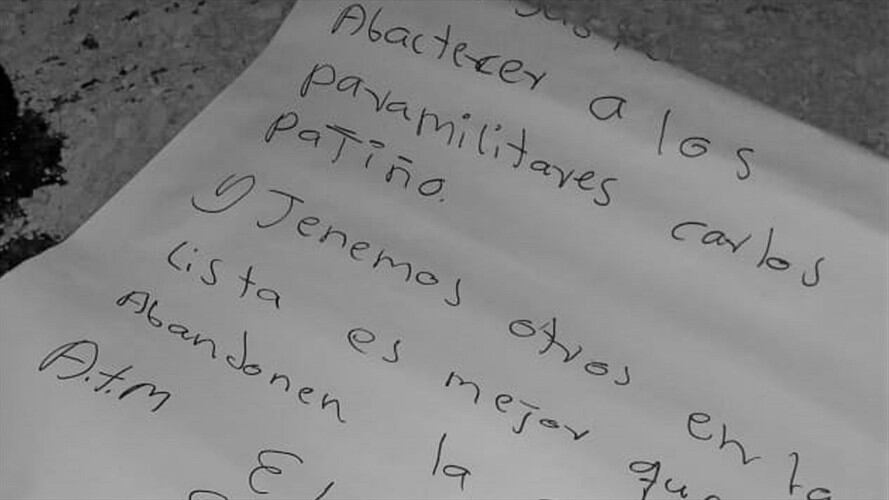 Abactecer a los
paramilitares carlos
patiño.
y Tenemos otros en la
lista es mejor que
Abandonen la
A.t.m